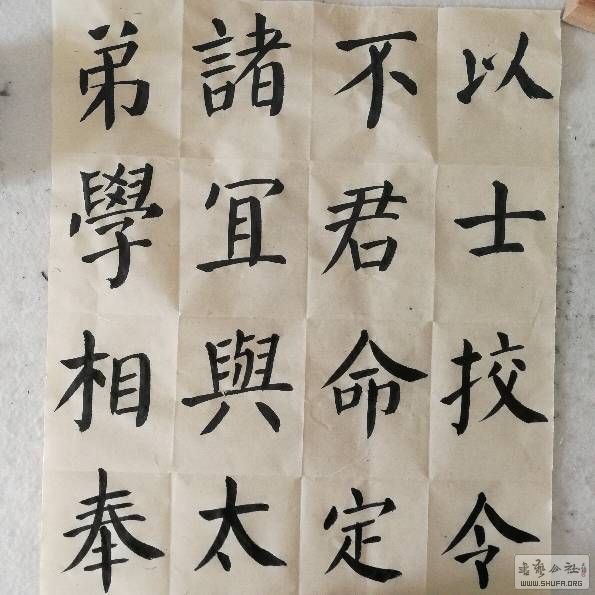 以士挍令
不君命定
諸冝與太
弟學相奉
WWW.SHUFA.ORG